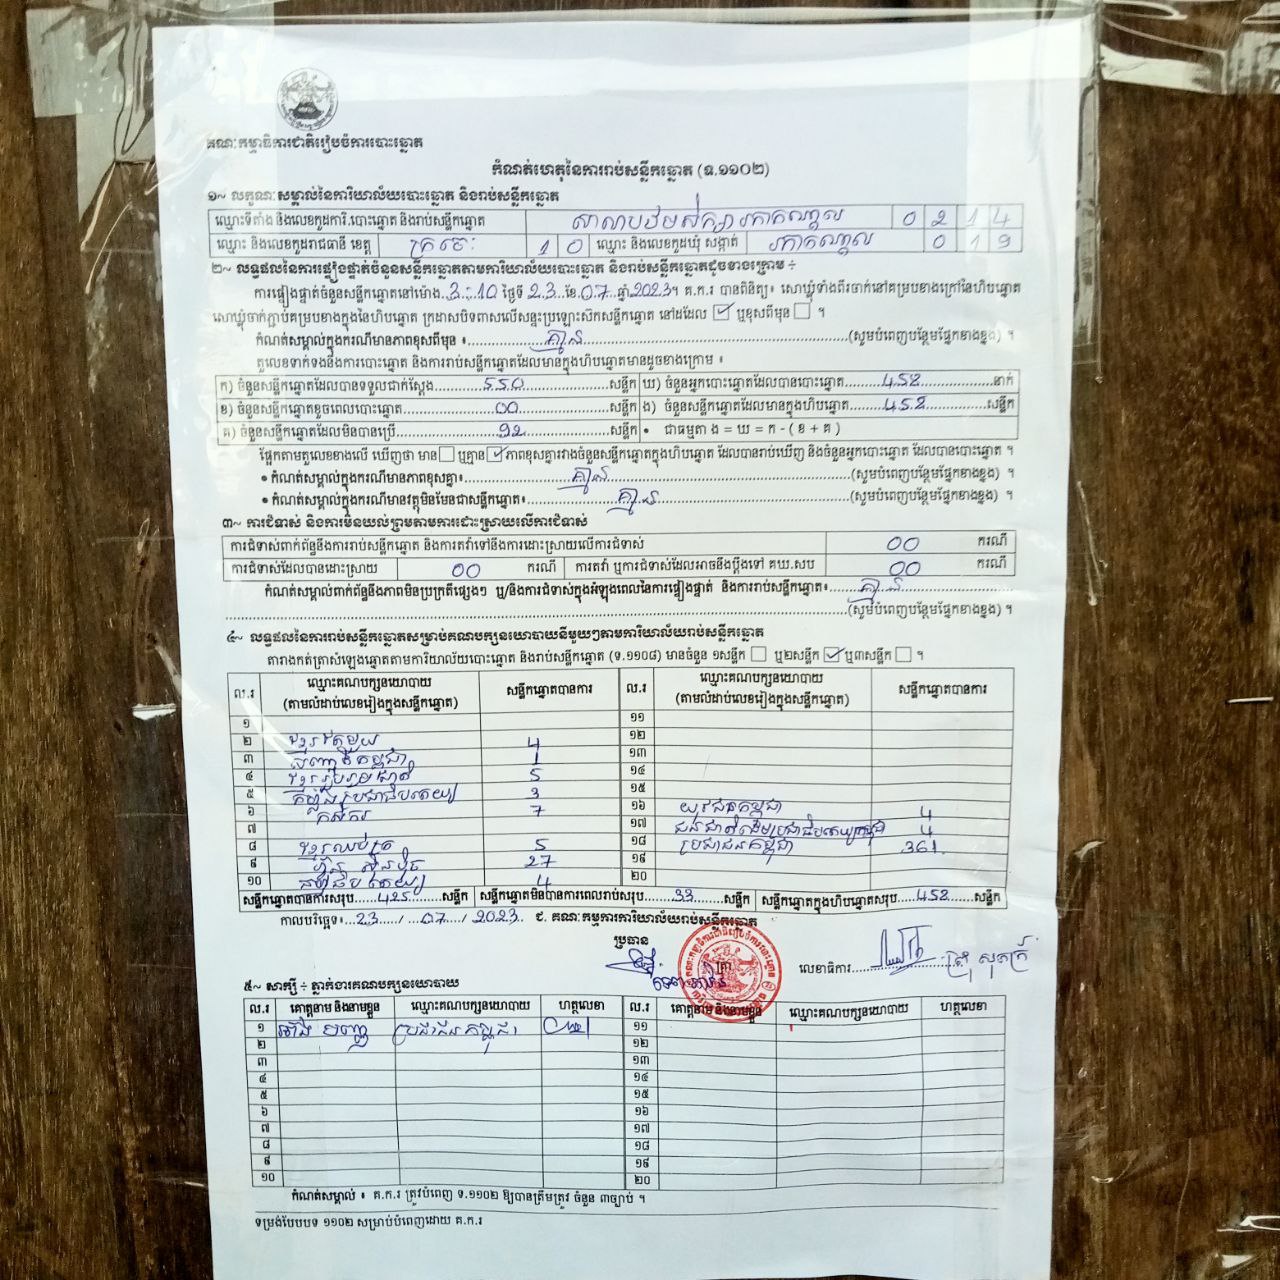 គណៈកម្មាធិការជាតិរៀបចំការបោះឆ្នោត
កំណត់ហេតុនៃការរាប់សន្លឹកឆ្នោត (ទ.១១០២)
១~ លក្ខណៈសម្គាល់នៃការិយាល័យបោះឆ្នោត និងរាប់សន្លឹកឆ្នោត
ឈ្មោះទីតាំង និងលេខកូដការិ.បោះឆ្នោត និងរាប់សន្លឹកឆ្នោត សាលាបឋមសិក្សា រកាកណ្តាល 0 2 1 4
ឈ្មោះ និងលេខកូដរាជធានី ខេត្ត ក្រចេះ 1 0 ឈ្មោះ និងលេខកូដឃុំ សង្កាត់ រកាកណ្តាល 0 1 9
២~ លទ្ធផលនៃការផ្ទៀងផ្ទាត់ចំនួនសន្លឹកឆ្នោតតាមការិយាល័យបោះឆ្នោត និងរាប់សន្លឹកឆ្នោតដូចខាងក្រោម ÷
ការផ្ទៀងផ្ទាត់ចំនួនសន្លឹកឆ្នោតនៅម៉ោង 3:10 ថ្ងៃទី 23 ខែ 07 ឆ្នាំ 2023។ គ.ក.រ បានពិនិត្យ៖ សោឃ្លុំទាំងពីរចាក់នៅគម្របខាងក្រៅនៃហិបឆ្នោត
សោឃ្លុំចាក់ភ្ជាប់គម្របខាងក្នុងនៃហិបឆ្នោត ក្រដាសបិទពាសលើសន្ទះប្រឡោះសឹកសន្លឹកឆ្នោត នៅដដែល ☑ ឬខុសពីមុន ☐ ។
កំណត់សម្គាល់ក្នុងករណីមានភាពខុសពីមុន ៖ គ្មាន (សូមបំពេញបន្ថែមផ្នែកខាងខ្នង) ។
តួលេខទាក់ទងនឹងការបោះឆ្នោត និងការរាប់សន្លឹកឆ្នោតដែលមានក្នុងហិបឆ្នោតមានដូចខាងក្រោម ៖
ក) ចំនួនសន្លឹកឆ្នោតដែលបានទទួលជាក់ស្តែង 550 សន្លឹក ឃ) ចំនួនអ្នកបោះឆ្នោតដែលបានបោះឆ្នោត 458 នាក់
ខ) ចំនួនសន្លឹកឆ្នោតខូចពេលបោះឆ្នោត 00 សន្លឹក ង) ចំនួនសន្លឹកឆ្នោតដែលមានក្នុងហិបឆ្នោត 458 សន្លឹក
គ) ចំនួនសន្លឹកឆ្នោតដែលមិនបានប្រើ 92 សន្លឹក • ជាធម្មតា ង = ឃ = ក - ( ខ + គ )
ផ្អែកតាមតួលេខខាងលើ ឃើញថា មាន ☐ ឬគ្មាន ☑ ភាពខុសគ្នារវាងចំនួនសន្លឹកឆ្នោតក្នុងហិបឆ្នោត ដែលបានរាប់ឃើញ និងចំនួនអ្នកបោះឆ្នោត ដែលបានបោះឆ្នោត ។
• កំណត់សម្គាល់ក្នុងករណីមានភាពខុសគ្នា៖ គ្មាន (សូមបំពេញបន្ថែមផ្នែកខាងខ្នង) ។
• កំណត់សម្គាល់ក្នុងករណីមានវត្ថុមិនមែនជាសន្លឹកឆ្នោត៖ គ្មាន (សូមបំពេញបន្ថែមផ្នែកខាងខ្នង) ។
៣~ ការជំទាស់ និងការមិនយល់ព្រមតាមការដោះស្រាយលើការជំទាស់
ការជំទាស់ពាក់ព័ន្ធនឹងការរាប់សន្លឹកឆ្នោត និងការតវ៉ាទៅនឹងការដោះស្រាយលើការជំទាស់ 00 ករណី
ការជំទាស់ដែលបានដោះស្រាយ 00 ករណី ការតវ៉ា ឬការជំទាស់ដែលអាចនឹងប្តឹងទៅ គឃ.សប 00 ករណី
កំណត់សម្គាល់ពាក់ព័ន្ធនឹងភាពមិនប្រក្រតីផ្សេងៗ ឬ/និងការជំទាស់ក្នុងអំឡុងពេលនៃការផ្ទៀងផ្ទាត់ និងការរាប់សន្លឹកឆ្នោត៖ គ្មាន
(សូមបំពេញបន្ថែមផ្នែកខាងខ្នង) ។
៤~ លទ្ធផលនៃការរាប់សន្លឹកឆ្នោតសម្រាប់គណបក្សនយោបាយនីមួយៗតាមការិយាល័យរាប់សន្លឹកឆ្នោត
តារាងកត់ត្រាសំឡេងឆ្នោតតាមការិយាល័យបោះឆ្នោត និងរាប់សន្លឹកឆ្នោត (ទ.១១០៨) មានចំនួន ១សន្លឹក ☐ ឬ២សន្លឹក ☑ ឬ៣សន្លឹក ☐ ។
ល.រ ឈ្មោះគណបក្សនយោបាយ (តាមលំដាប់លេខរៀងក្នុងសន្លឹកឆ្នោត) សន្លឹកឆ្នោតបានការ ល.រ ឈ្មោះគណបក្សនយោបាយ (តាមលំដាប់លេខរៀងក្នុងសន្លឹកឆ្នោត) សន្លឹកឆ្នោតបានការ
១ ១១
២ ខ្មែរតែមួយ 4 ១២
៣ សញ្ជាតិកម្ពុជា 1 ១៣
៤ ខ្មែររួបរួមជាតិ 5 ១៤
៥ សំបុកឃ្មុំប្រជាធិបតេយ្យ 3 ១៥
៦ កសិករ 7 ១៦ យុវជនកម្ពុជា 4
៧ ១៧ ជនជាតិដើមប្រជាធិបតេយ្យកម្ពុជា 4
៨ ខ្មែរឈប់ក្រ 5 ១៨ ប្រជាជនកម្ពុជា 361
៩ ហ៊្វុនស៊ិនប៉ិច 27 ១៩
១០ 4 ២០
សន្លឹកឆ្នោតបានការសរុប 425 សន្លឹក សន្លឹកឆ្នោតមិនបានការពេលរាប់សរុប 33 សន្លឹក សន្លឹកឆ្នោតក្នុងហិបឆ្នោតសរុប 458 សន្លឹក
កាលបរិច្ឆេទ៖ 23 / 07 / 2023 ជ. គណៈកម្មការការិយាល័យរាប់សន្លឹកឆ្នោត
ប្រធាន
លេខាធិការ
៥~ សាក្សី ÷ ភ្នាក់ងារគណបក្សនយោបាយ
ល.រ គោត្តនាម និងនាមខ្លួន ឈ្មោះគណបក្សនយោបាយ ហត្ថលេខា ល.រ គោត្តនាម និងនាមខ្លួន ឈ្មោះគណបក្សនយោបាយ ហត្ថលេខា
១ ប្រជាជនកម្ពុជា ១១
២ ១២
៣ ១៣
៤ ១៤
៥ ១៥
៦ ១៦
៧ ១៧
៨ ១៨
៩ ១៩
១០ ២០
កំណត់សម្គាល់ ៖ គ.ក.រ ត្រូវបំពេញ ទ.១១០២ ឱ្យបានត្រឹមត្រូវ ចំនួន ៣ច្បាប់ ។
ទម្រង់បែបបទ ១១០២ សម្រាប់បំពេញដោយ គ.ក.រ